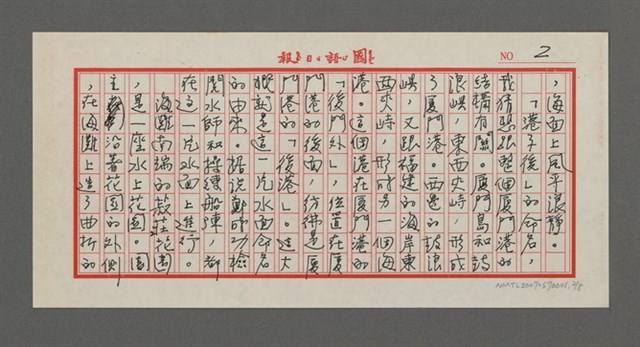 國語日報
NO 2
，海面上風平浪靜。
「港子後」的命名，
我猜想跟整個廈門港的
結構有關。廈門島和鼓
浪嶼，東西夾峙，形成
了廈門港。西邊的鼓浪
嶼，又跟福建的海岸東
西夾峙，形成另一個海
港。這個港在廈門港的
「後門外」，位置在廈
門港的後面，彷彿是廈
門港的「後港」。這大
概就是這一片水面命名
的由來。據說鄭成功檢
閱水師和操練船隊，都
在這一片水面上進行。
海灘南端的菽莊花園
，是一座水上花園。園
主沿著花園的外側
，在海灘上造了曲折的
NMTL2007